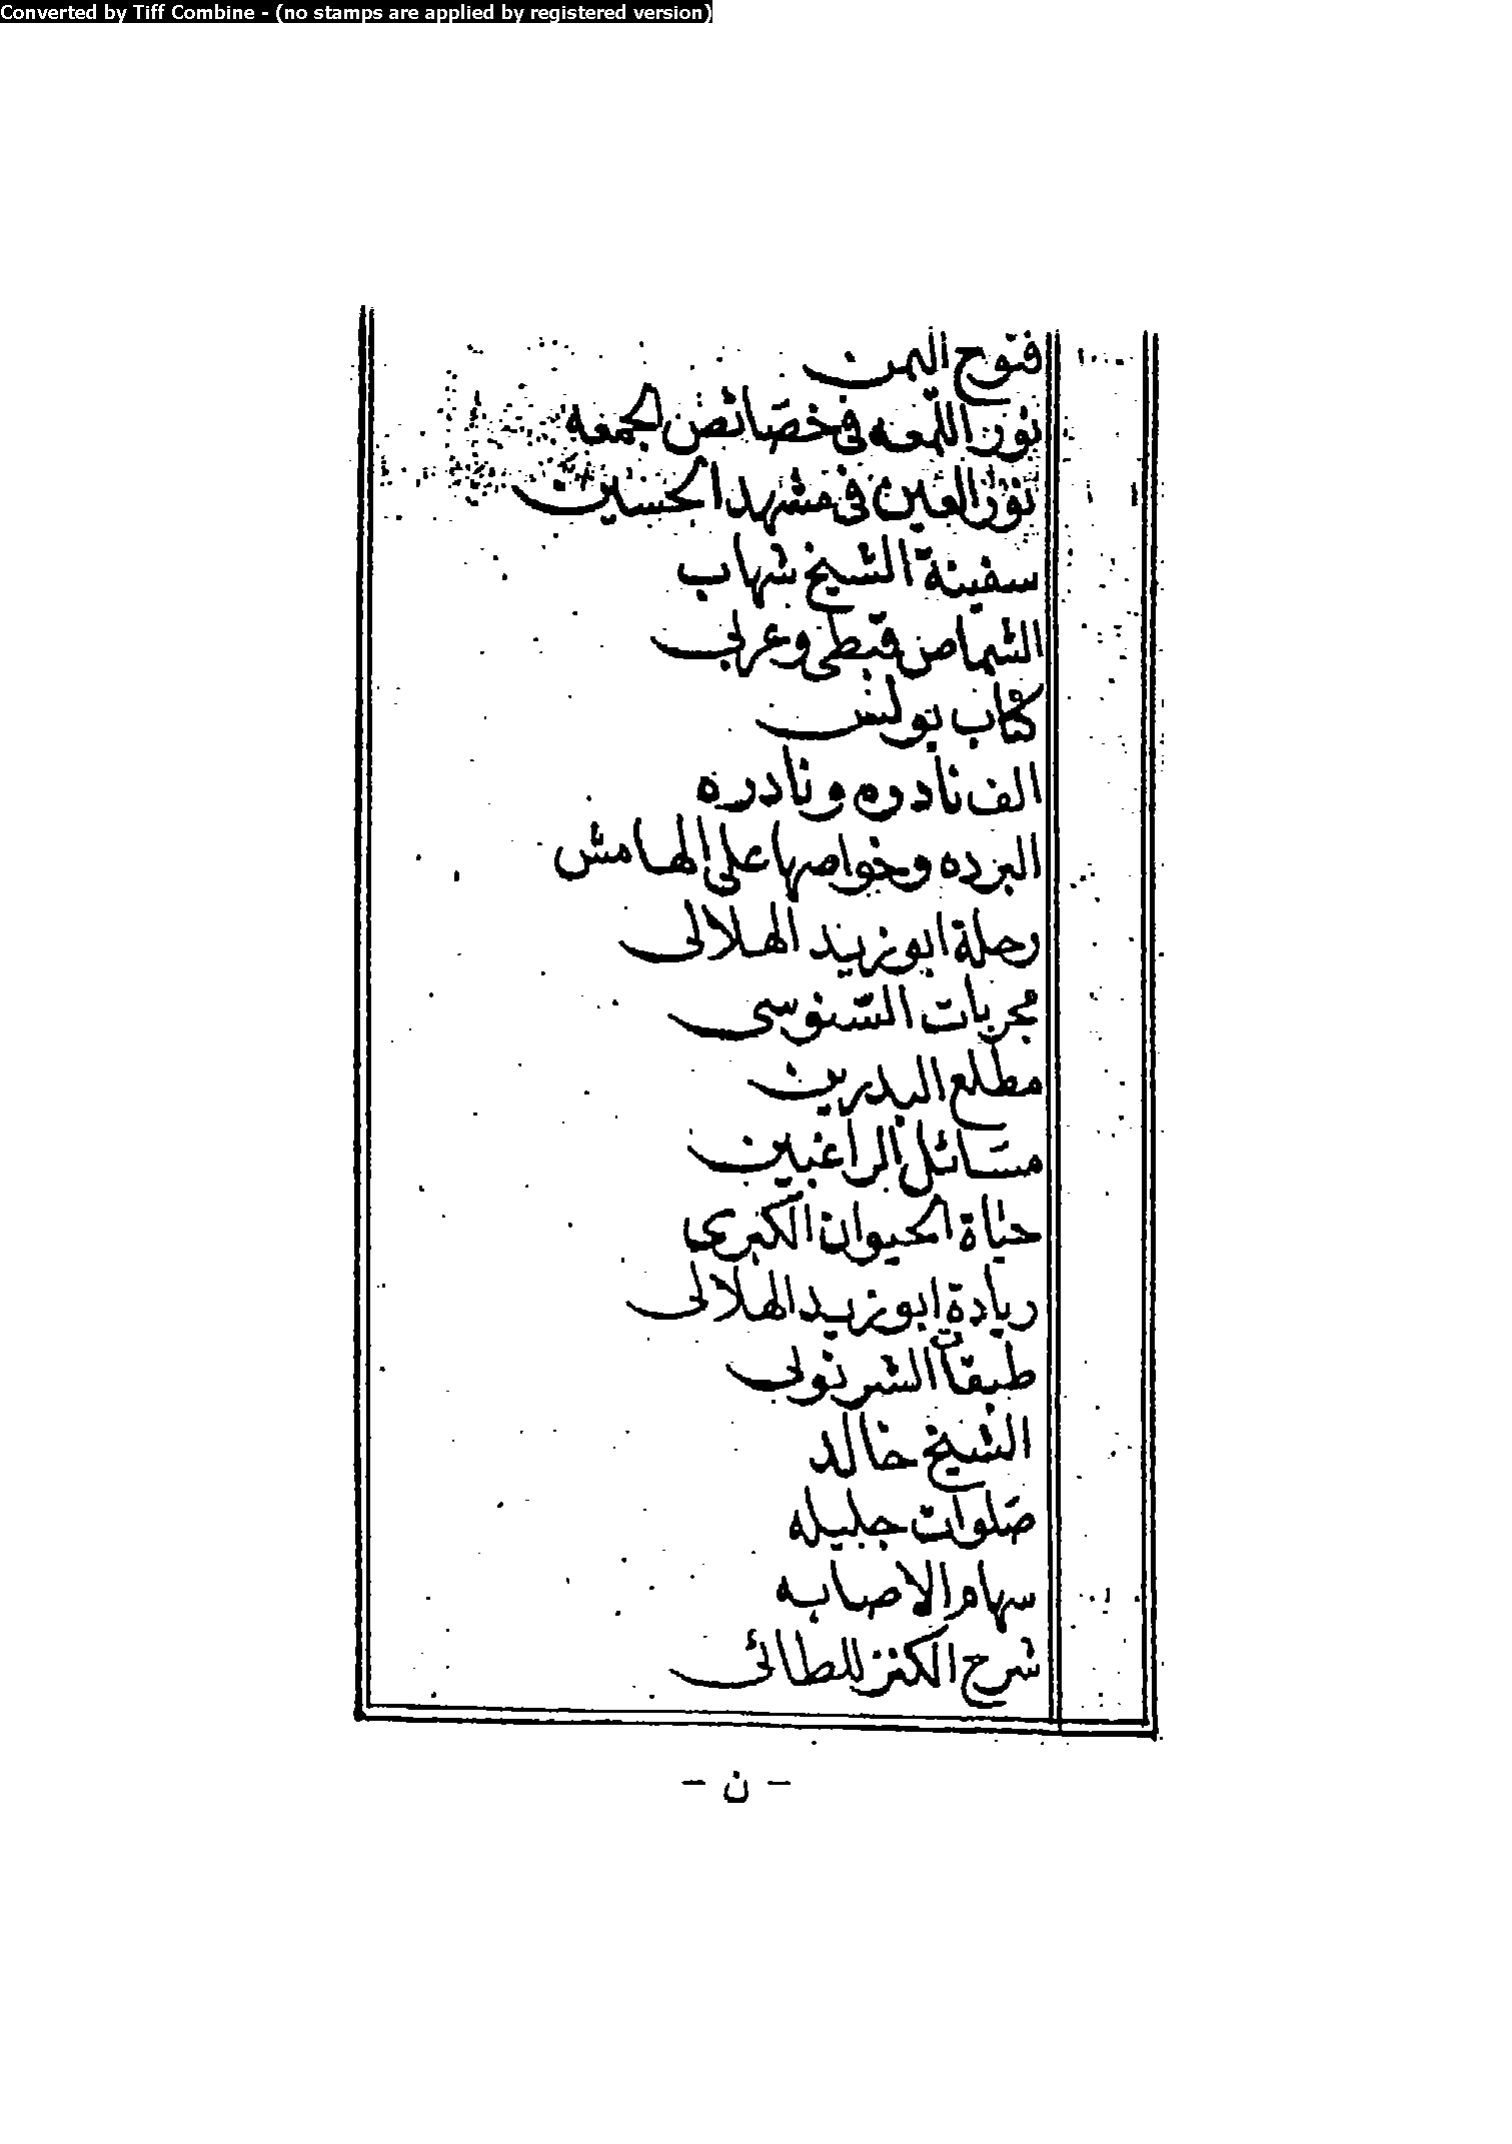 Converted by Tiff Combine - (no stamps are applied by registered version)
فتوح اليمن
نور اللمعه فى خصائص الجمعه
نور العين فى مشهد الحسين
سفينة الشيخ شهاب
الشماص قبطى وعربى
كتاب بولس
الف نادره ونادره
البرده وخواصها على الهامش
رحلة ابو زيد الهلالى
مجربات السنوسى
مطلع البدرين
مسائل الراغبين
حياة الحيوان الكبرى
ريادة ابو زيد الهلالى
طبقات الشرنوبى
الشيخ خالد
صلوات جليله
سهام الاصابه
شرح الكنز للطائى
- ن -